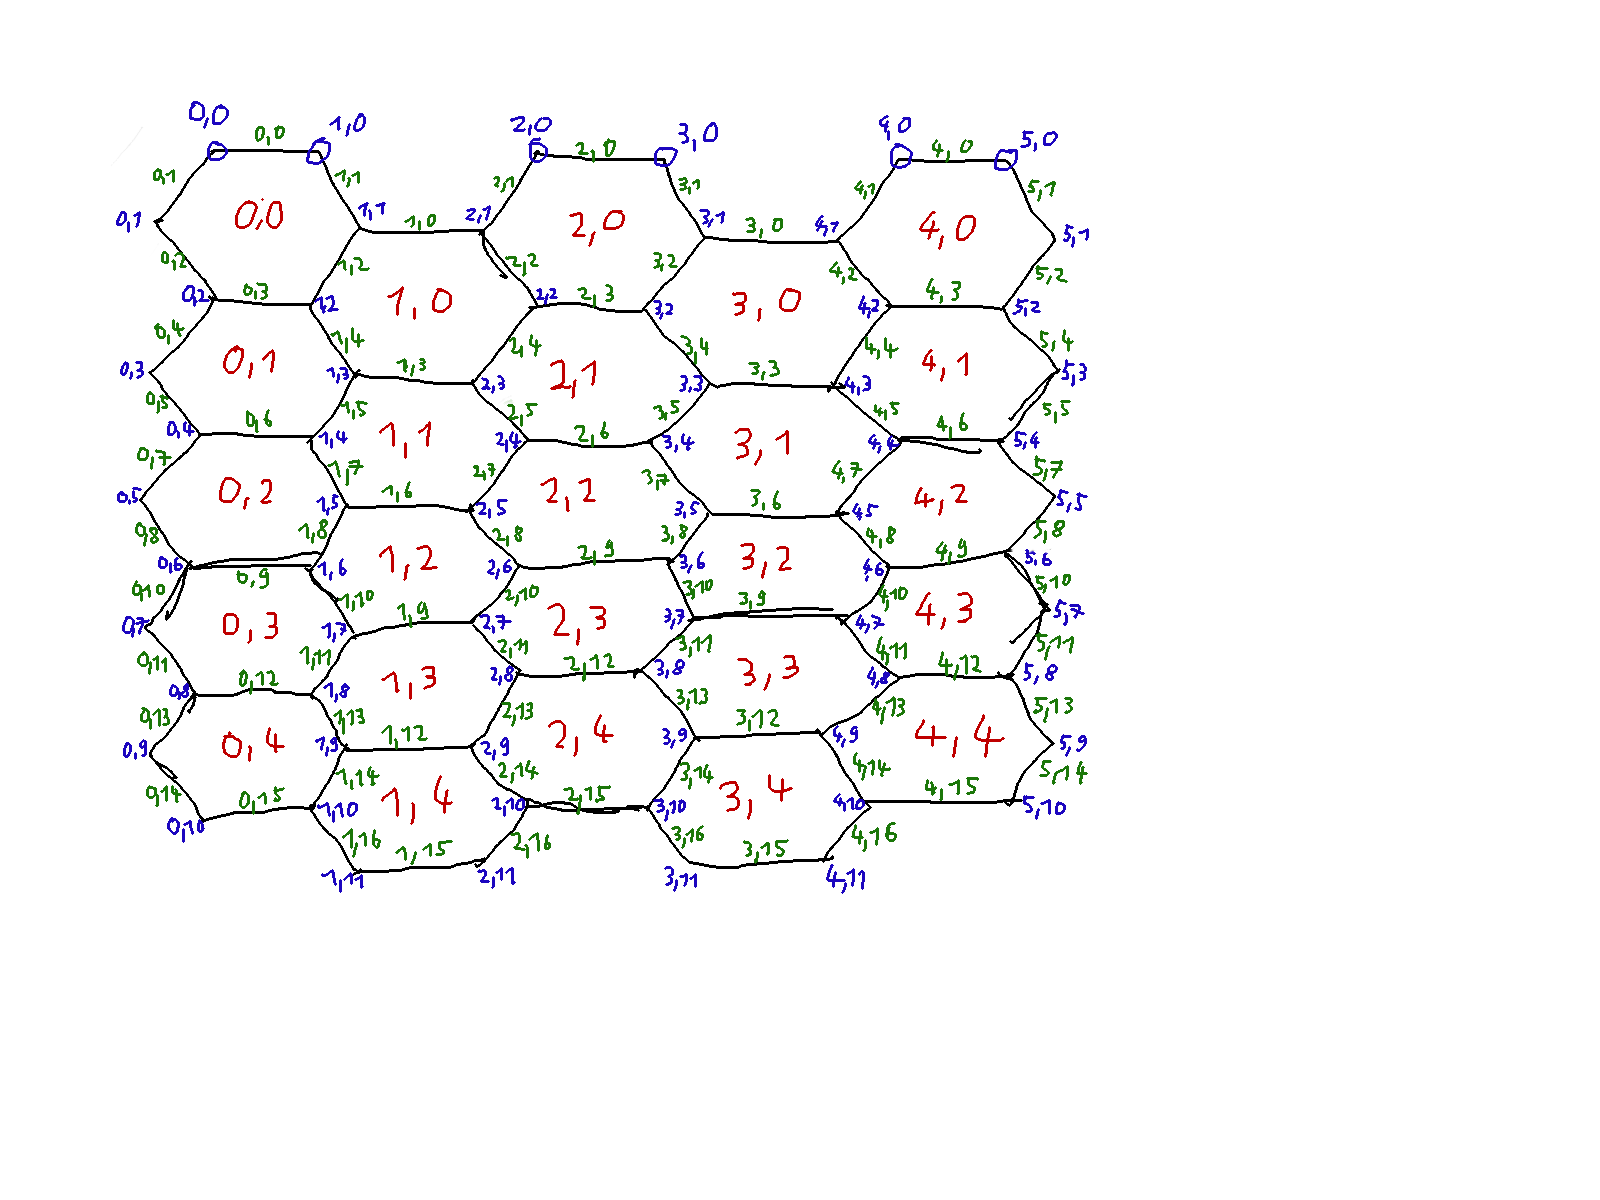 0,0 1,0 2,0 3,0 4,0 5,0
0,0 2,0 4,0
0,1 1,1 2,1 3,1 4,1 5,1
0,1 0,0 1,1 1,0 2,1 2,0 3,1 3,0 4,1 4,0 5,1
0,2 1,2 2,2 3,2 4,2 5,2
0,2 0,3 1,2 1,0 2,2 2,3 3,2 3,0 4,2 4,3 5,2
0,4 1,4 2,4 3,4 4,4 5,4
0,3 0,1 1,3 1,3 2,3 2,1 3,3 3,3 4,3 4,1 5,3
0,5 1,5 2,5 3,5 4,5 5,5
0,4 0,6 1,4 1,1 2,4 2,6 3,4 3,1 4,4 4,6 5,4
0,7 1,7 2,7 3,7 4,7 5,7
0,5 0,2 1,5 1,6 2,5 2,2 3,5 3,6 4,5 4,2 5,5
0,8 1,8 2,8 3,8 4,8 5,8
0,6 0,9 1,6 1,2 2,6 2,9 3,6 3,2 4,6 4,9 5,6
0,10 1,10 2,10 3,10 4,10 5,10
0,7 0,3 1,7 1,9 2,7 2,3 3,7 3,9 4,7 4,3 5,7
0,11 1,11 2,11 3,11 4,11 5,11
0,8 0,12 1,8 1,3 2,8 2,12 3,8 3,3 4,8 4,12 5,8
0,13 1,13 2,13 3,13 4,13 5,13
0,9 0,4 1,9 1,12 2,9 2,4 3,9 3,12 4,9 4,4 5,9
0,14 1,14 2,14 3,14 4,14 5,14
0,10 0,15 1,10 1,4 2,10 2,15 3,10 3,4 4,10 4,15 5,10
1,16 2,16 3,16 4,16
1,11 1,15 2,11 3,11 3,15 4,11